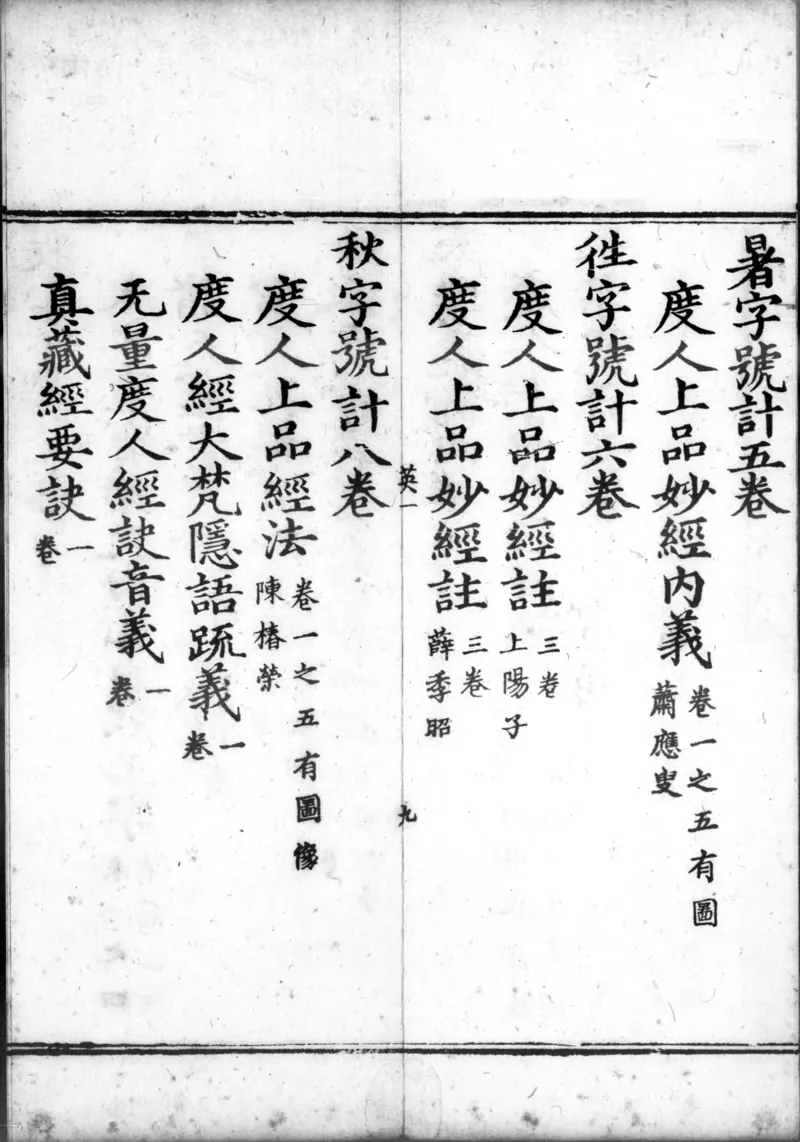 暑字號計五卷
度人上品妙經內義
卷一之五有圖
蕭應叟
徃字號計六卷
度人上品妙經註
三卷
上陽子
度人上品妙經註
三卷
薛季昭
英一
九
秋字號計八卷
度人上品經法
卷一之五有圖像
陳椿榮
度人經大梵隱語疏義
一
卷
无量度人經訣音義
一
卷
真藏經要訣
一
卷